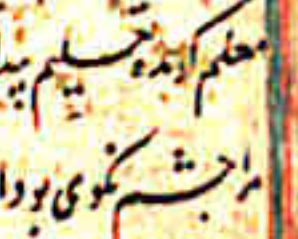 معلم کرنده تعلیم بید
مرا چشم نکوی بود ا